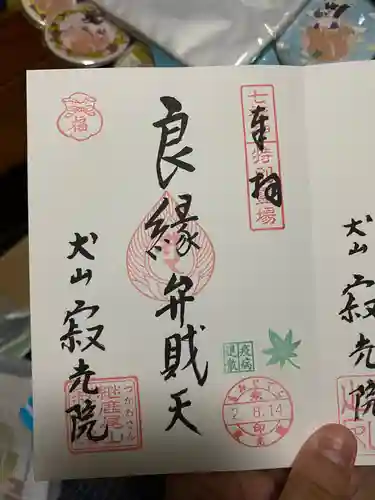 奉拝
特別霊場
良縁弁財天
犬山
寂光院
福
疫病
退散
つがおさん
継鹿尾山
2.8.14
犬山
寂光院